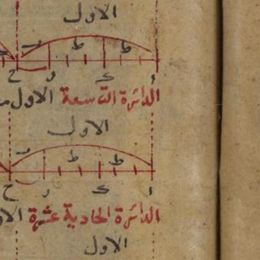 الاول
ط ط
ا ح و ح
الدائرة التاسعة الاول
الاول
ط ط
ا ح و ح
الدائرة الحادية عشرة الاو
الاول